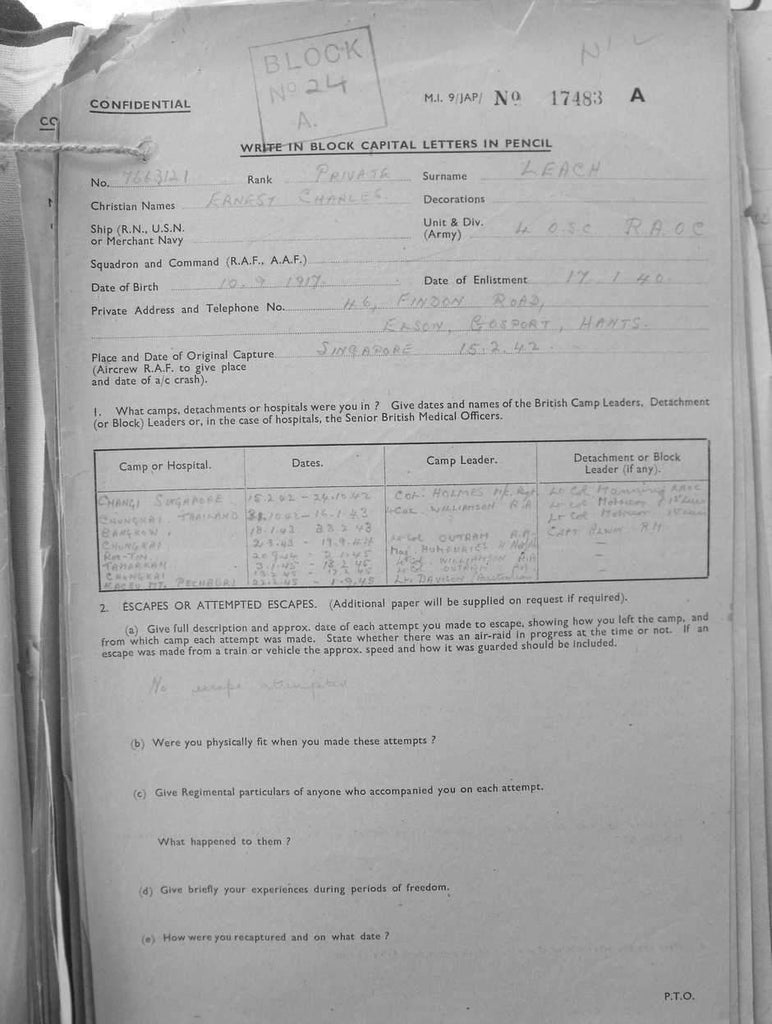 BLOCK
No 24
A.
CONFIDENTIAL
M.I. 9/JAP/ No 17483 A
WRITE IN BLOCK CAPITAL LETTERS IN PENCIL
No. 7663121 Rank PRIVATE Surname LEACH
Christian Names ERNEST CHARLES Decorations
Ship (R.N., U.S.N. or Merchant Navy
Unit & Div. (Army) 4 O.S.C R.A.O.C
Squadron and Command (R.A.F., A.A.F.)
Date of Birth 10.9.1917. Date of Enlistment 17.1.40.
Private Address and Telephone No. 46, FINDON ROAD,
ELSON, GOSPORT, HANTS.
Place and Date of Original Capture SINGAPORE 15.2.42.
(Aircrew R.A.F. to give place
and date of a/c crash).
1. What camps, detachments or hospitals were you in ? Give dates and names of the British Camp Leaders, Detachment
(or Block) Leaders or, in the case of hospitals, the Senior British Medical Officers.
Camp or Hospital. Dates. Camp Leader. Detachment or Block Leader (if any).
CHANGI SINGAPORE 15.2.42 - 24.10.42 COL. HOLMES Lt Col
CHUNGKAI. THAILAND 16.1.43 Lt COL. WILLIAMSON R.A Lt Col
BANGKOK, 18.1.43 23.2.43 Lt Col
CHUNGKAI 2.3.43 - Lt Col OUTRAM R.A. CAPT R.A.
Maj HUMPHRIES —
TAMARKAN 3.1.45 - Lt Col WILLIAMSON R.A —
CHUNGKAI Lt Col OUTRAM —
PECHABURI - 1.9.45 Lt. (Australian) —
2. ESCAPES OR ATTEMPTED ESCAPES. (Additional paper will be supplied on request if required).
(a) Give full description and approx. date of each attempt you made to escape, showing how you left the camp, and
from which camp each attempt was made. State whether there was an air-raid in progress at the time or not. If an
escape was made from a train or vehicle the approx. speed and how it was guarded should be included.
No escape attempted
(b) Were you physically fit when you made these attempts ?
(c) Give Regimental particulars of anyone who accompanied you on each attempt.
What happened to them ?
(d) Give briefly your experiences during periods of freedom.
(e) How were you recaptured and on what date ?
P.T.O.